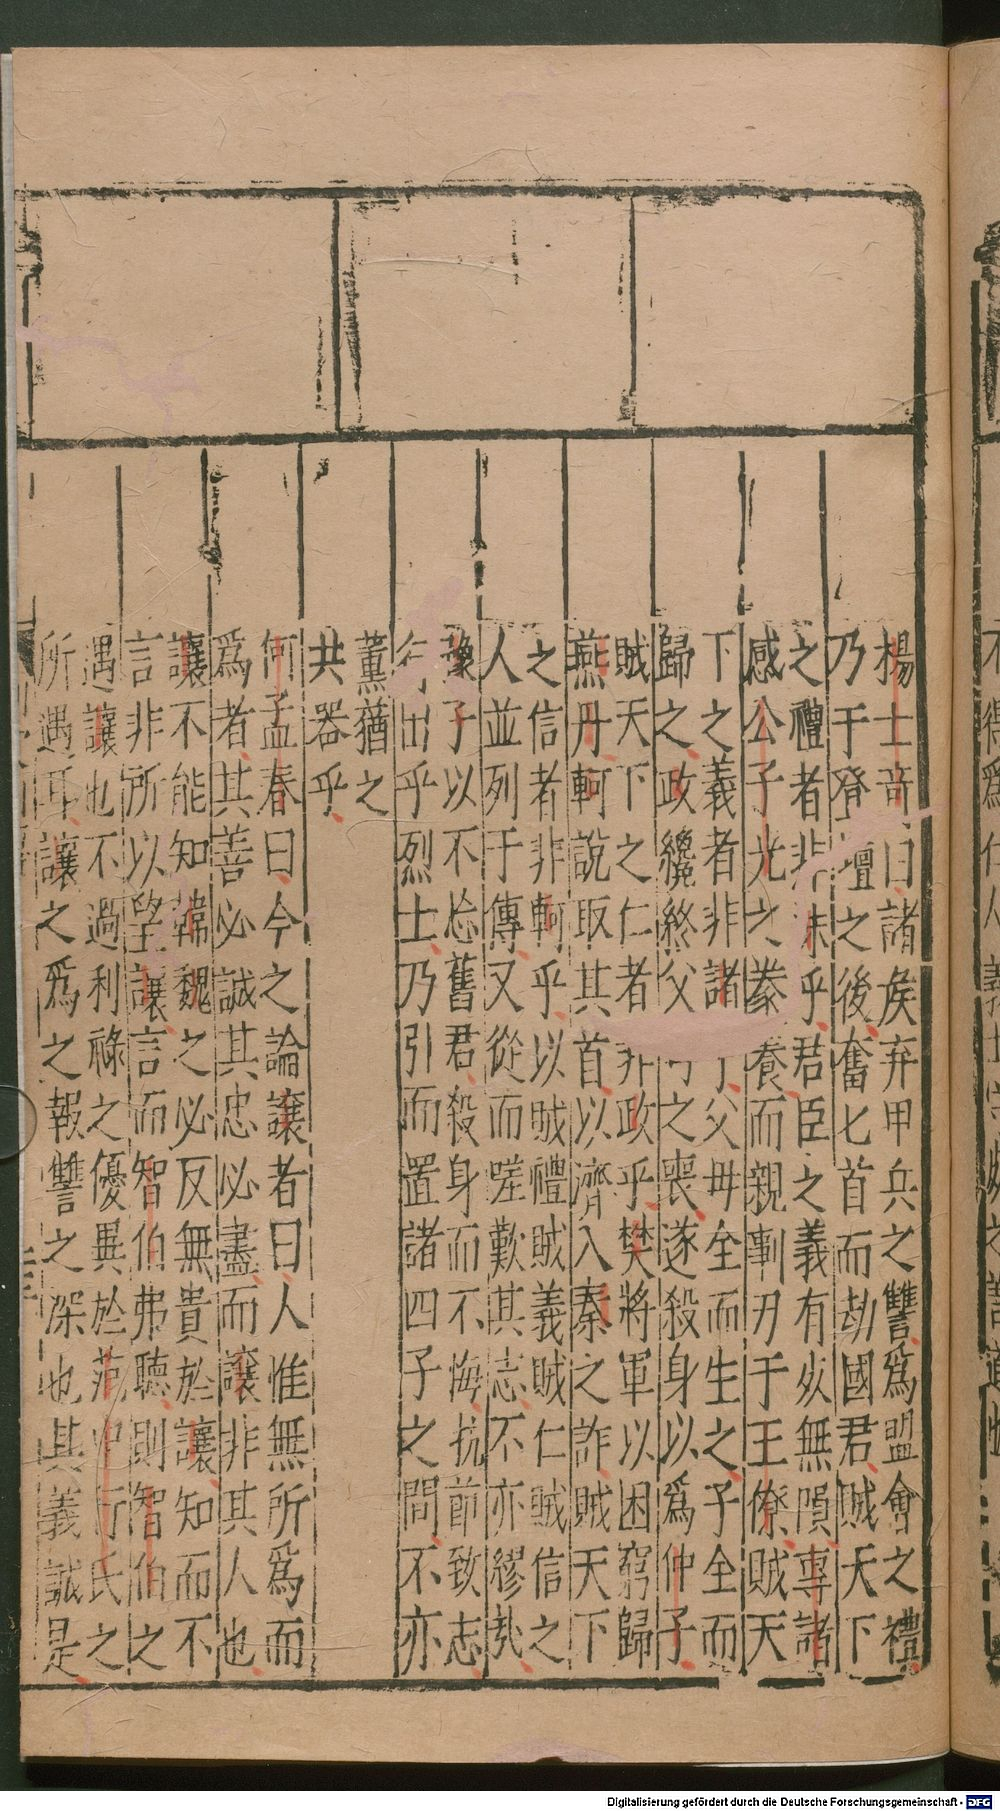 楊士奇曰諸矦弃甲兵之讐爲盟會之禮
乃于登壇之後奮匕首而劫國君賊天下
之禮者非沫乎君臣之義有死無隕專諸
感公子光之豢養而親剚刃于王僚賊天
下之義者非諸 父母全而生之子全而
歸之政纔終父 之喪遂殺身以爲仲子
賊天下之仁者非政乎樊將軍以困窮歸
燕丹軻說取其首以濟入秦之詐賊天下
之信者非軻乎以賊禮賊義賊仁賊信之
人並列于傳又從而嗟歎其志不亦繆哉
豫子以不忘舊君殺身而不悔抗節致志
行出乎烈士乃引而置諸四子之間不亦
薰蕕之
共器乎
何孟春曰今之論讓者曰人惟無所爲而
爲者其善必誠其忠必盡而讓非其人也
讓不能知韓魏之必反無貴於讓知而不
言非所以望讓言而智伯弗聽則智伯之
遇讓也不過利祿之優異於范中行氏之
所遇耳讓之爲之報讐之深也其義誠是
Digitalisierung gefördert durch die Deutsche Forschungsgemeinschaft - DFG